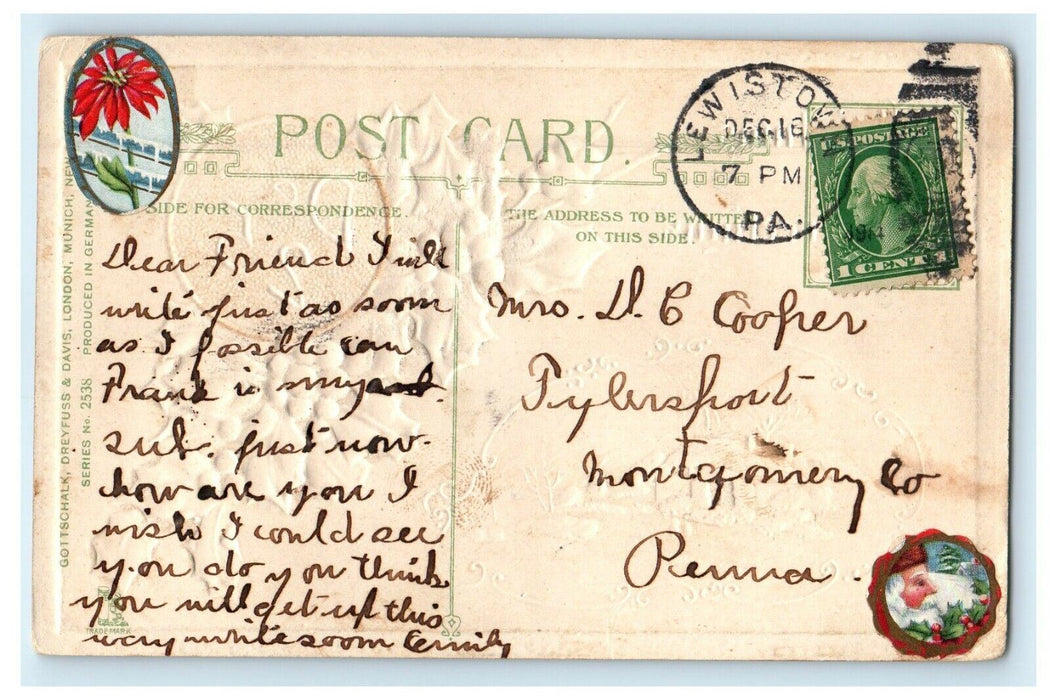 POST CARD.
SIDE FOR CORRESPONDENCE.
THE ADDRESS TO BE WRITTEN
ON THIS SIDE.
LEWISTOWN
DEC 16
7 PM
PA.
POSTAGE
1914
1 CENT
GOTTSCHALK, DREYFUSS & DAVIS, LONDON, MUNICH, NEW
SERIES No. 2538 PRODUCED IN GERMAN
TRADE MARK
Dear Friend I will
write just as soon
as I possible can
Frank is my
sub. just now.
how are you I
wish I could see
you do you think
you will get up this
way write soon Emily
Mrs. D. C Cooper
Tylersport
Montgomery Co
Penna.